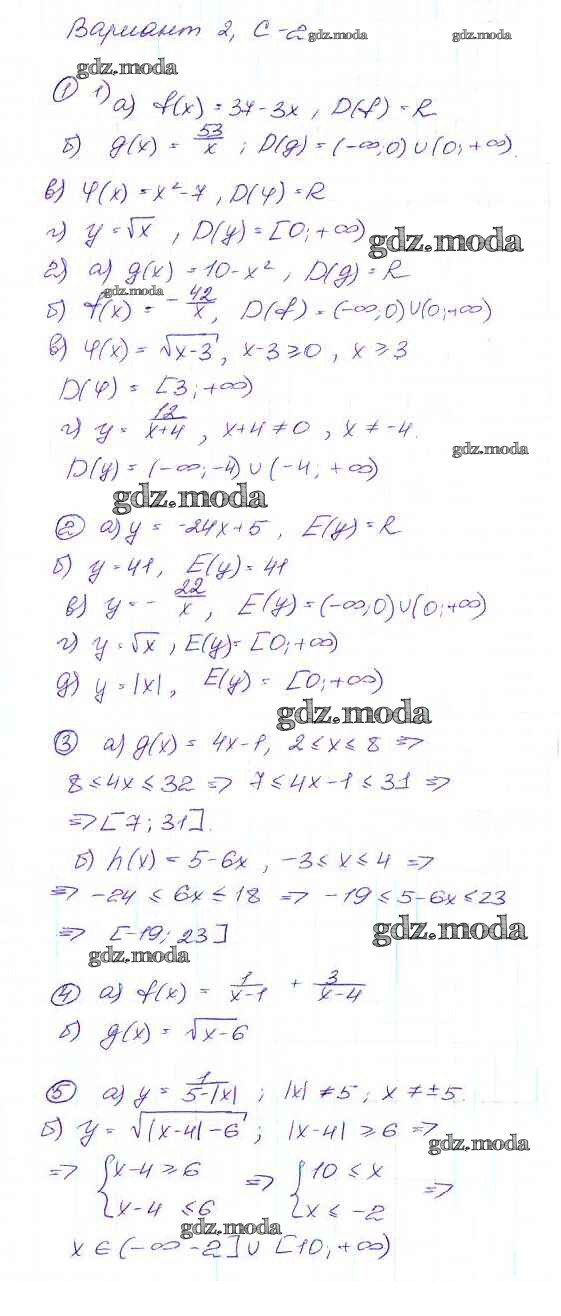 Вариант 2, С-2 gdz.moda gdz.moda
gdz.moda
① 1) а) f(x) = 37-3x, D(f) = R
б) g(x) = 53/x ; D(g) = (-∞; 0) ∪ (0; +∞).
в) φ(x) = x²-7, D(φ) = R
г) y = √x, D(y) = [0; +∞)
gdz.moda
2) а) g(x) = 10-x², D(g) = R
gdz.moda
б) f(x) = -42/x, D(f) = (-∞; 0) ∪ (0; +∞)
в) φ(x) = √(x-3), x-3 ≥ 0, x ≥ 3
D(φ) = [3; +∞)
г) y = 12/(x+4), x+4 ≠ 0, x ≠ -4.
gdz.moda
D(y) = (-∞; -4) ∪ (-4; +∞)
gdz.moda
② а) y = -24x+5, E(y) = R
б) y = 41, E(y) = 41
в) y = -22/x, E(y) = (-∞; 0) ∪ (0; +∞)
г) y = √x, E(y) = [0; +∞)
д) y = |x|, E(y) = [0; +∞)
gdz.moda
③ а) g(x) = 4x-1, 2 ≤ x ≤ 8 =>
8 ≤ 4x ≤ 32 => 7 ≤ 4x-1 ≤ 31 =>
=> [7; 31].
б) h(x) = 5-6x, -3 ≤ x ≤ 4 =>
=> -24 ≤ 6x ≤ 18 => -19 ≤ 5-6x ≤ 23
=> [-19; 23]
gdz.moda
gdz.moda
④ а) f(x) = 1/(x-1) + 3/(x-4)
б) g(x) = √(x-6)
⑤ а) y = 1/(5-|x|) ; |x| ≠ 5; x ≠ ±5.
б) y = √(|x-4|-6) ; |x-4| ≥ 6 =>
gdz.moda
=> { x-4 ≥ 6 => { 10 ≤ x =>
x-4 ≤ 6 x ≤ -2
gdz.moda
x ∈ (-∞ -2] ∪ [10; +∞)